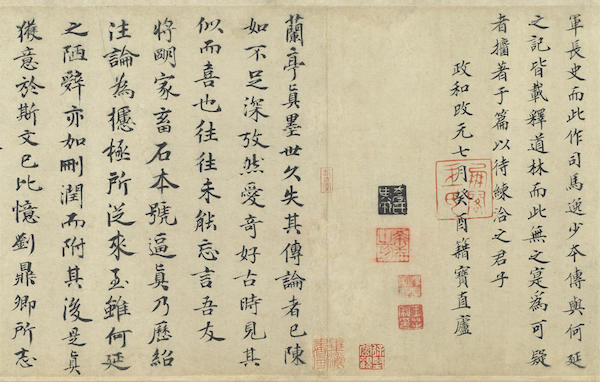 軍長史而此作司馬逸少本傳與何延
之記皆載釋道林而此無之寔為可疑
者擥著于篇以待練洽之君子
政和改元七月癸酉籍寶直廬
蘭亭真墨世久失其傳論者已陳
如不足深攷然愛奇好古時見其
似而喜也往往未能忘言吾友
將明家畜石本號逼真乃歷紹
注論為攄極所從來至雖何延
之陋辭亦加刪潤而附其後是真
獲意於斯文已比憶劉鼎卿所志